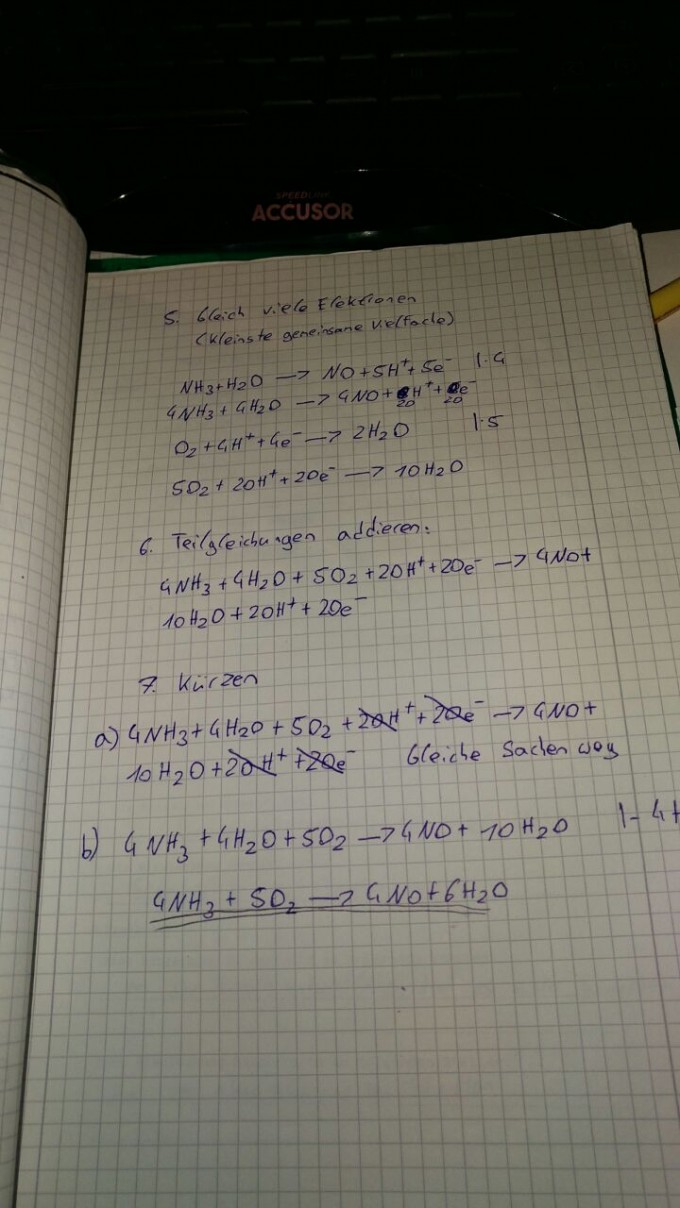 SPEEDLINK
ACCUSOR
5. Gleich viele Elektronen
(kleinste gemeinsame Vielfache)
NH3+H2O → NO+5H⁺+5e⁻ |·4
4NH3+4H2O → 4NO+20H⁺+20e⁻
O2+4H⁺+4e⁻ → 2H2O |·5
5O2+20H⁺+20e⁻ → 10H2O
6. Teilgleichungen addieren:
4NH3+4H2O+5O2+20H⁺+20e⁻ → 4NO+
10H2O+20H⁺+20e⁻
7. Kürzen
a) 4NH3+4H2O+5O2+20H⁺+20e⁻ → 4NO+
10H2O+20H⁺+20e⁻ Gleiche Sachen weg
b) 4NH3+4H2O+5O2 → 4NO+10H2O |-4H
4NH3+5O2 → 4NO+6H2O